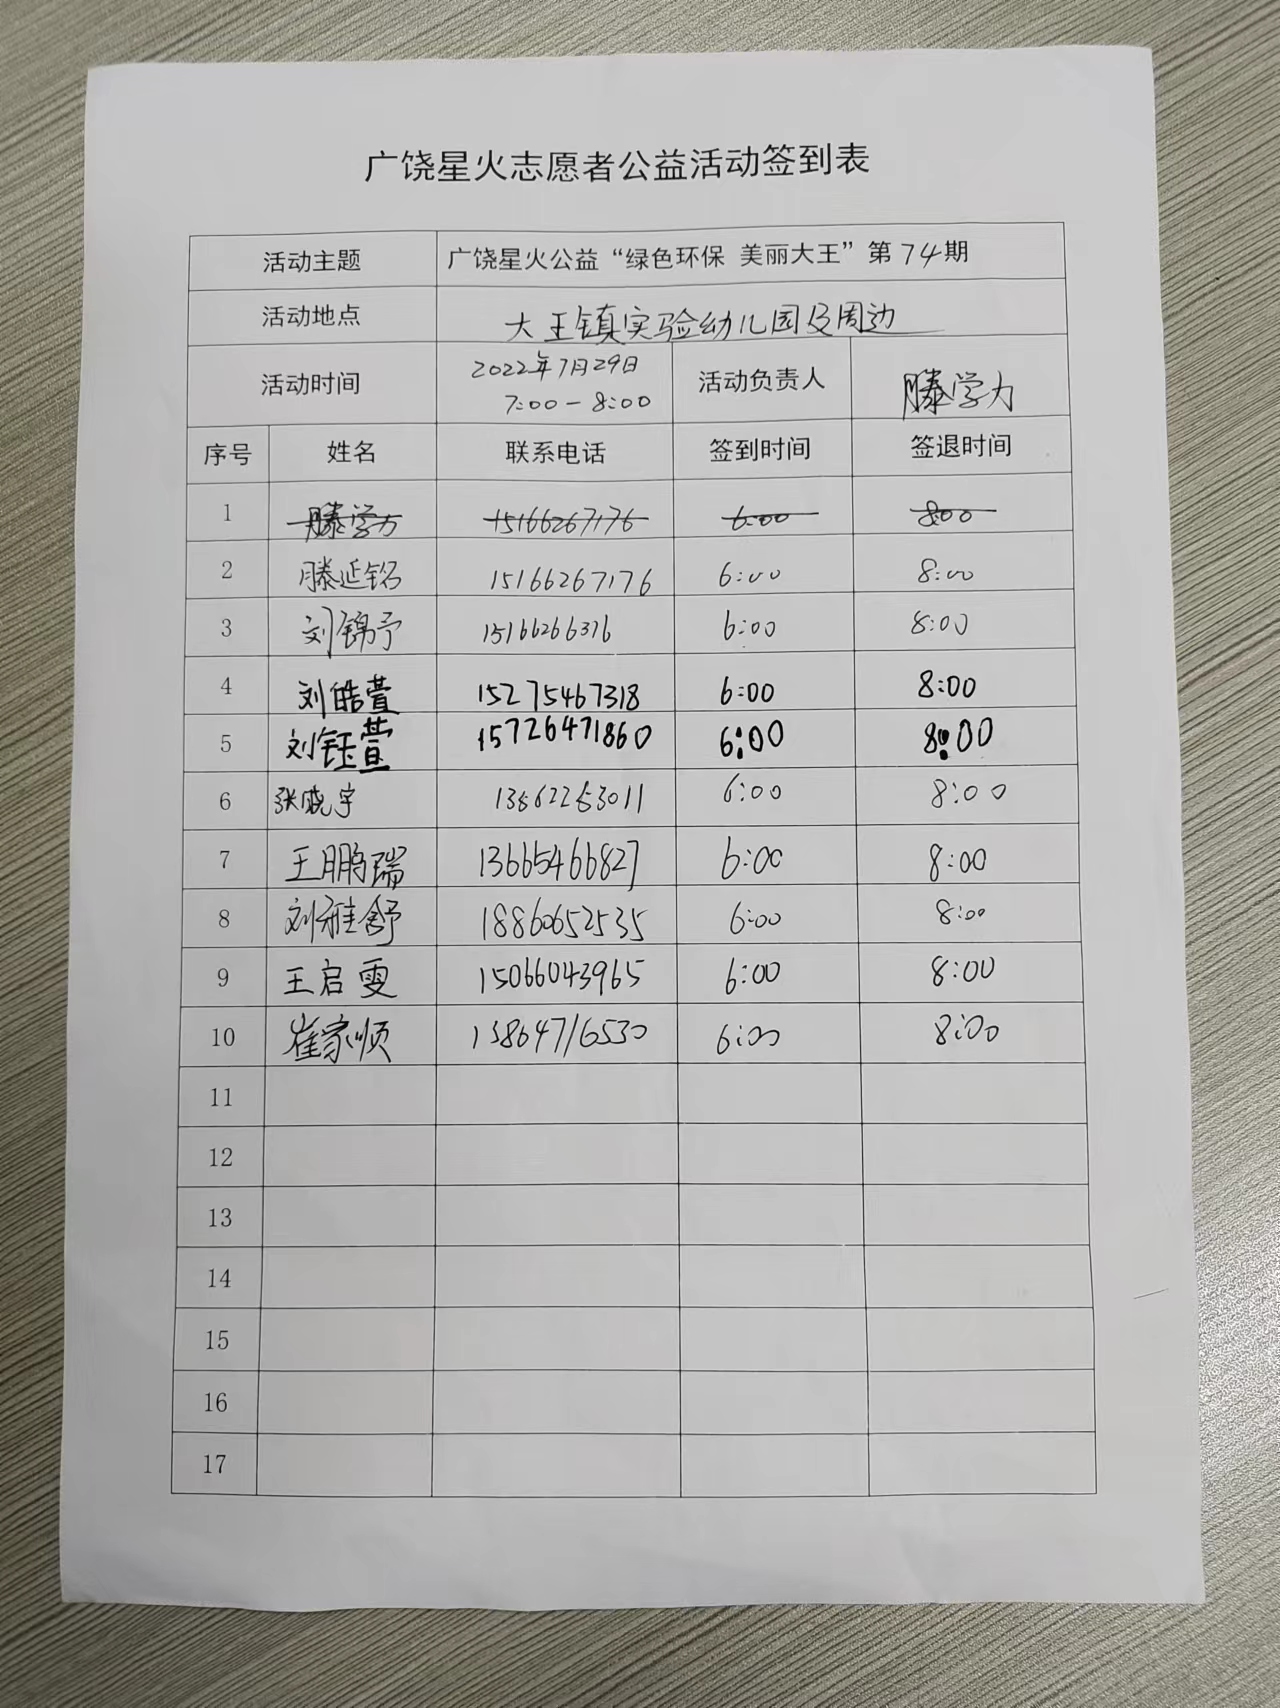 广饶星火志愿者公益活动签到表
活动主题 广饶星火公益“绿色环保 美丽大王”第74期
活动地点 大王镇实验幼儿园及周边
活动时间 2022年7月29日 7:00-8:00 活动负责人 滕学力
序号 姓名 联系电话 签到时间 签退时间
1 滕学力 15166267176 6:00 8:00
2 滕延铭 15166267176 6:00 8:00
3 刘锦予 15166266316 6:00 8:00
4 刘皓萱 15275467318 6:00 8:00
5 刘钰萱 15726471860 6:00 8:00
6 张晓宇 6:00 8:00
7 王鹏瑞 13665466827 6:00 8:00
8 刘雅舒 18860652535 6:00 8:00
9 王启雯 15066043965 6:00 8:00
10 崔家顺 13864716530 6:00 8:00
11
12
13
14
15
16
17